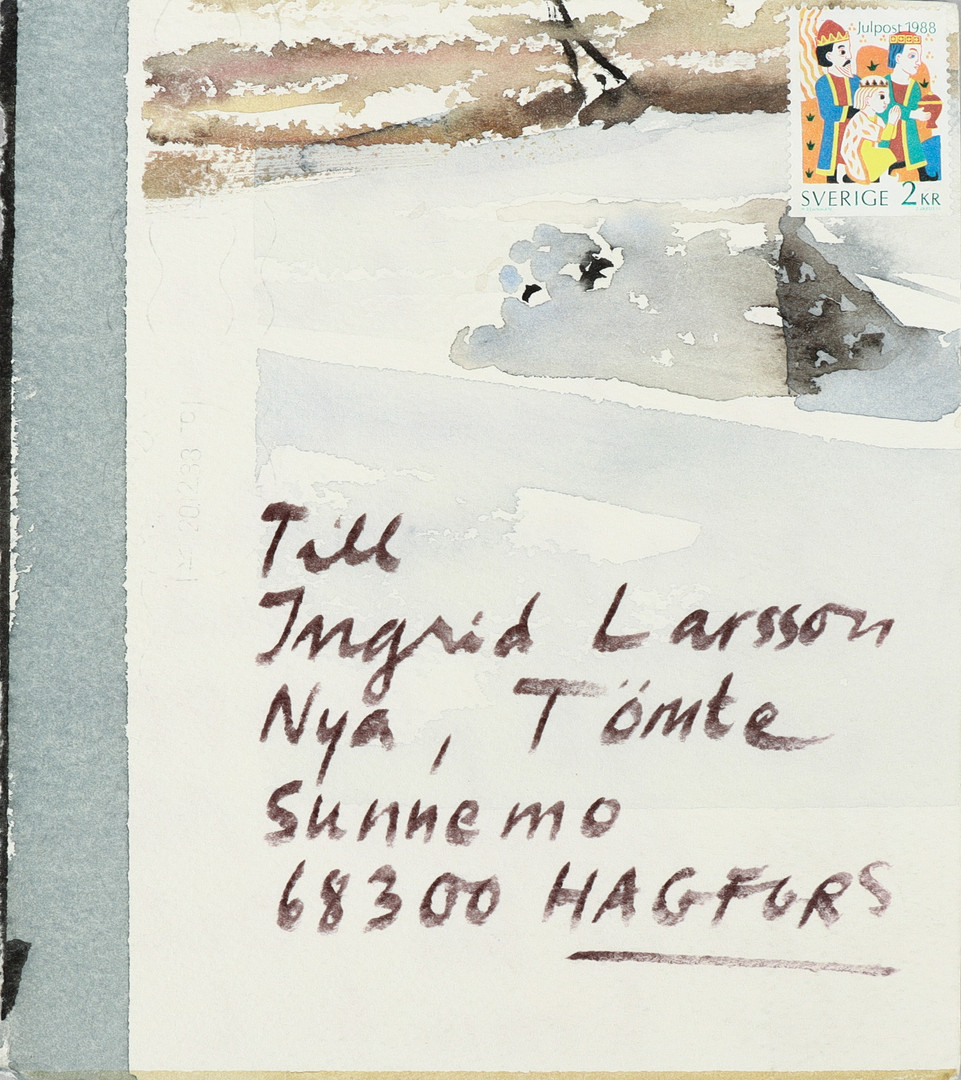 Julpost 1988
SVERIGE 2 KR
Till
Ingrid Larsson
Nya, Tömte
Sunnemo
68300 HAGFORS